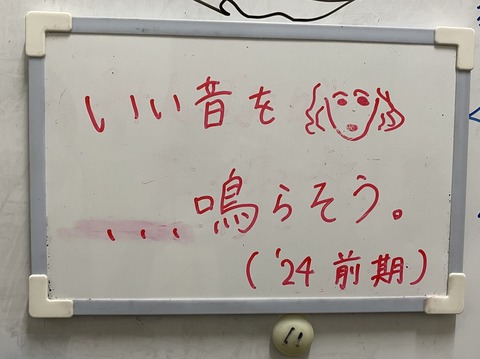 いい音を
...鳴らそう。
('24 前期)